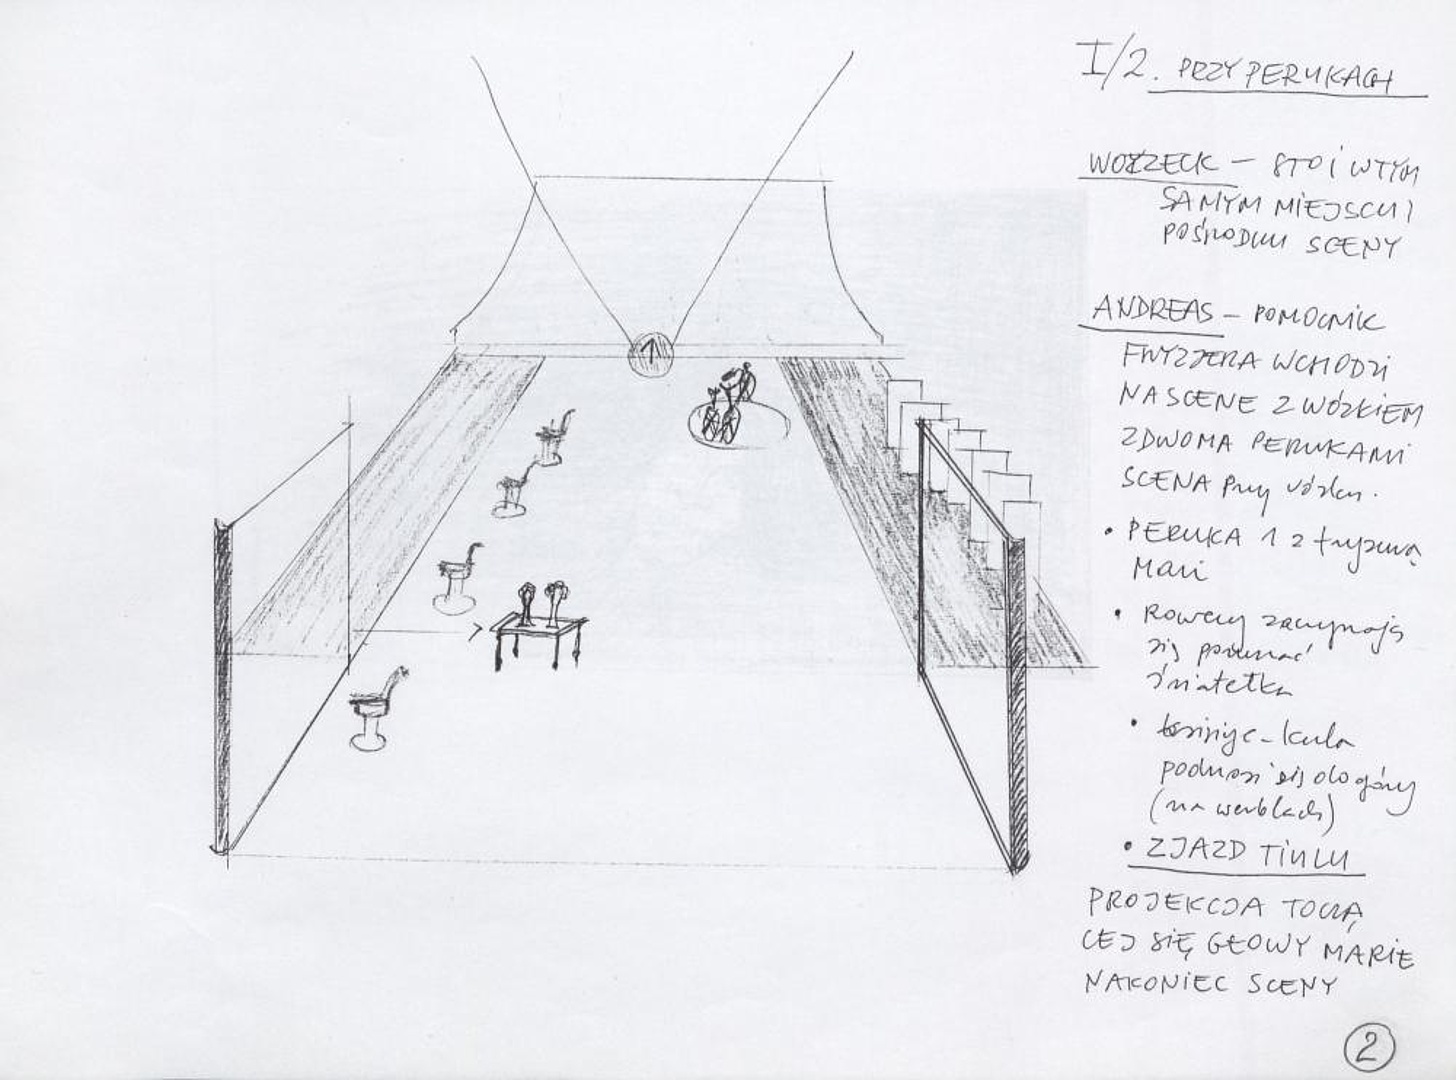 I/2. PRZY PERUKACH
WOZZECK – STOI W TYM
SAMYM MIEJSCU I
POŚRODKU SCENY
ANDREAS – POMOCNIK
FRYZJERA WCHODZI
NA SCENE Z WÓZKIEM
Z DWOMA PERUKAMI
SCENA Przy wózku.
• PERUKA 1 z fryzurą
Mari
• Rowery zaczynają
się poruszać
światełka
• księżyc - kula
podnosi się do góry
(na werblach)
• ZJAZD TIULU
PROJEKCJA TOCZĄ
CEJ SIĘ GŁOWY MARIE
NA KONIEC SCENY
2